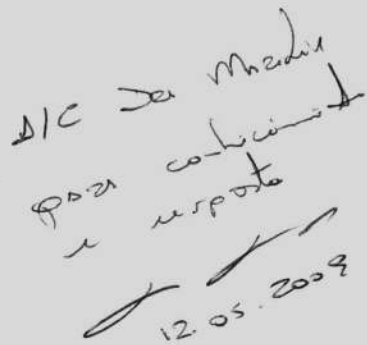 A/C Dra
para conhecimento
e resposta
12.05.2009